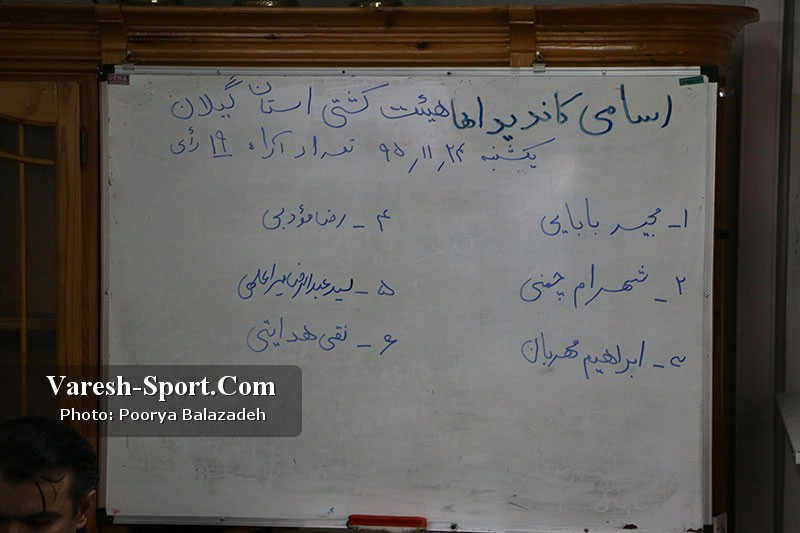 اسامی کاندیداها هیئت کشتی استان گیلان
یکشنبه ۹۵/۱۱/۲۴ تعداد آراء ۱۹ رأی
۱- مجید بابایی
۲- شهرام چمنی
۳- ابراهیم مهربان
۴- رضا مؤدبی
۵- سید عبدالرضا میراعلمی
۶- نقی هدایتی
Varesh-Sport.Com
Photo: Poorya Balazadeh